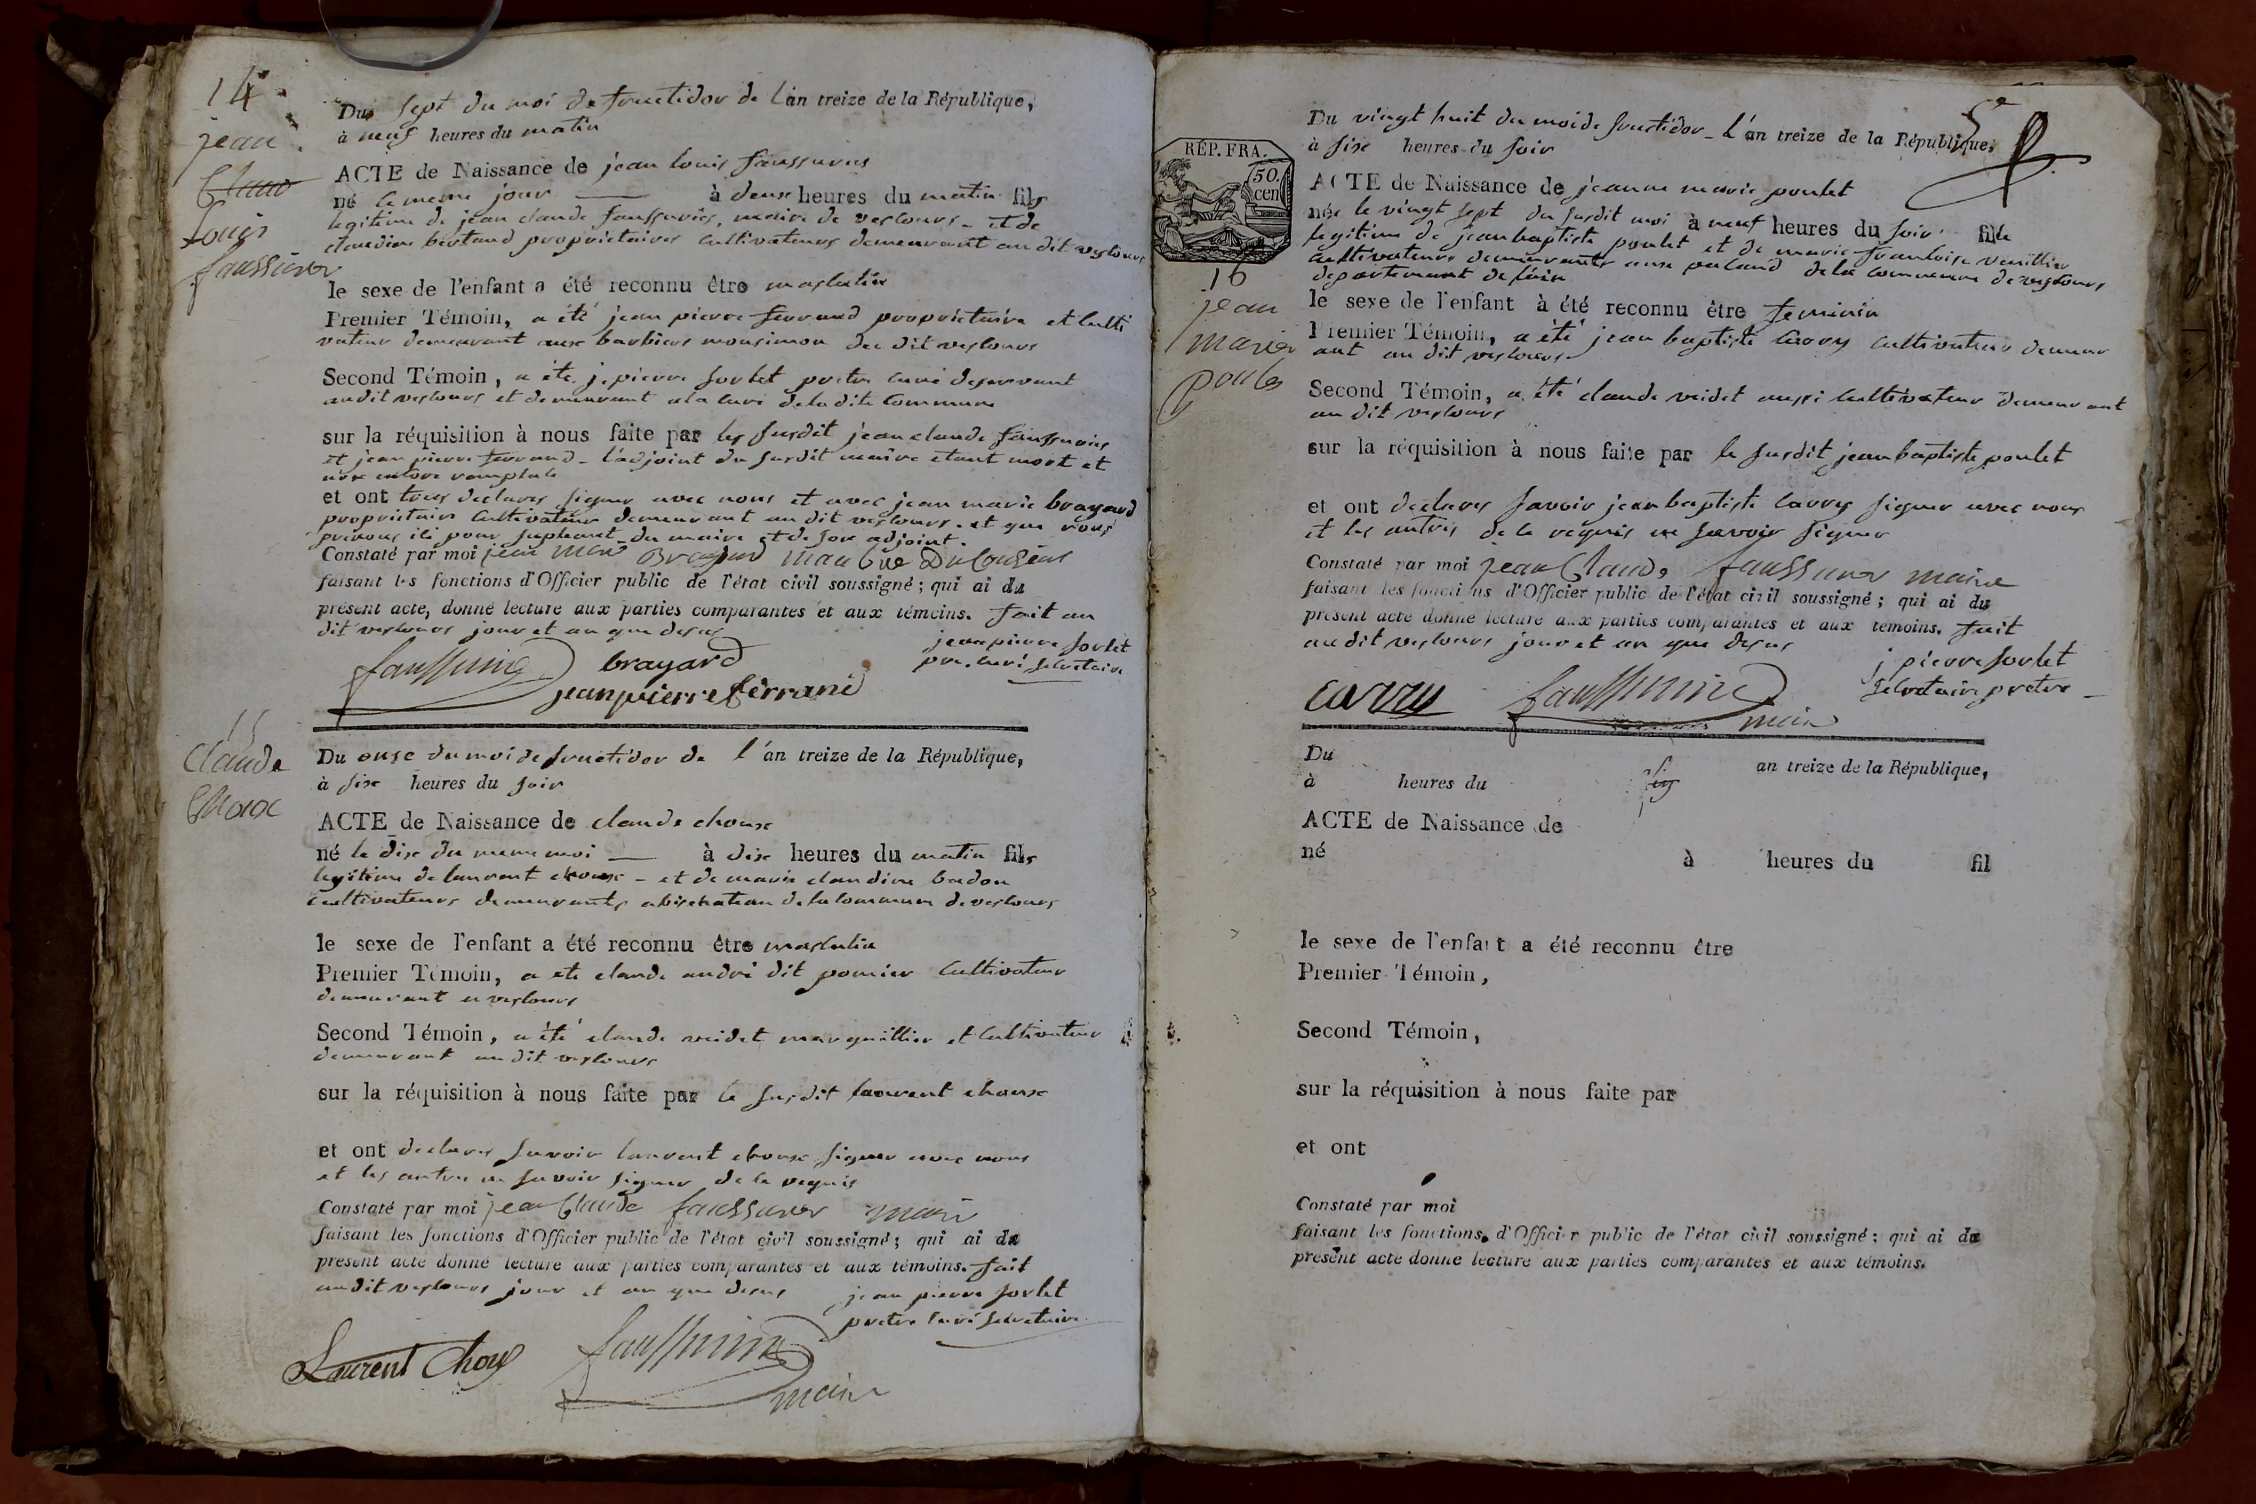 14
jean
Claud
Louis
faussurier
Du sept du moi de fructidor de l'an treize de la République,
à neuf heures du matin
ACTE de Naissance de jean louis faussuries
né le meme jour à deux heures du matin fils
legitime de jean claude faussuries, maire de veslours et de
claudine bertand proprietaires cultivateurs demeurant au dit veslours
le sexe de l'enfant a été reconnu être masculin
Premier Témoin, a été jean pierre ferrand proprietaire et culti
vateur demeurant aux barbiers monsimon du dit veslours
Second Témoin, a été j. pierre sorlet pretre curé desservant
audit veslours et demeurant a la cure de la dite commune
sur la réquisition à nous faite par les susdit jean claude faussuries
et jean pierre ferrand - l'adjoint du susdit maire etant mort et
non encore remplacé
et ont tous declares signer avec nous et avec jean marie brayard
proprietaire cultivateur demeurant au dit veslours et que nous
prenons ici pour supleant du maire et de son adjoint.
Constaté par moi jean marie Brayard membre Du Conseus
faisant les fonctions d'Officier public de l'état civil soussigné; qui ai du
présent acte, donné lecture aux parties comparantes et aux témoins. fait au
dit veslours jour et an que desus
jean pierre sorlet
pre. curé secretaire
faussurier brayard
jeanpierreferrand
15
Claude
Choux
Du onze du moi de fructidor de l'an treize de la République,
à six heures du soir
ACTE de Naissance de claude choux
né le dix du meme moi à dix heures du matin fils
legitime de laurent choux - et de marie claudine badon
cultivateurs demeurants a la commune de veslours
le sexe de l'enfant a été reconnu être masculin
Premier Témoin, a ete claude andré dit pomier cultivateur
demeurant a veslours
Second Témoin, a été claude veidet marguillier et cultivateur
demeurant au dit veslours
sur la réquisition à nous faite par le susdit laurent choux
et ont declares savoir laurent choux signer avec nous
et les autres ne savoir signer de le requis
Constaté par moi jean Claude faussurier maire
faisant les fonctions d'Officier public de l'état civil soussigné; qui ai du
présent acte donné lecture aux parties comparantes et aux témoins. fait
audit veslours jour et an que desus
jean pierre sorlet
pretre curé secretaire
Laurent Choux faussurier
maire
5e
RÉP. FRA.
50.
cen
16
jean
marie
poulet
Du vingt huit du moi de fructidor - l'an treize de la République,
à six heures du soir
ACTE de Naissance de jeanne marie poulet
née le vingt sept du susdit moi à neuf heures du soir fille
legitime de jean baptiste poulet et de marie francoise
cultivateurs demeurants aux de la commune de veslours
departement de l'ain
le sexe de l'enfant à été reconnu être feminin
Premier Témoin, a été jean baptiste Carry cultivateur demeur
ant au dit veslours
Second Témoin, a été claude veidet aussi cultivateur demeurant
au dit veslours
sur la réquisition à nous faite par le susdit jean baptiste poulet
et ont declares savoir jean baptiste Carry signer avec nous
et les autres de le requis ne savoir signer
Constaté par moi jean Claude faussurier maire
faisant les fonctions d'Officier public de l'état civil soussigné; qui ai du
présent acte donné lecture aux parties comparantes et aux témoins. fait
audit veslours jour et an que desus
j pierre sorlet
secretaire pretre
carry faussurier
maire
Du an treize de la République,
à heures du
ACTE de Naissance de
né à heures du fil
le sexe de l'enfant a été reconnu être
Premier Témoin,
Second Témoin,
sur la réquisition à nous faite par
et ont
Constaté par moi
faisant les fonctions d'Officier public de l'état civil soussigné; qui ai du
présent acte donné lecture aux parties comparantes et aux témoins.